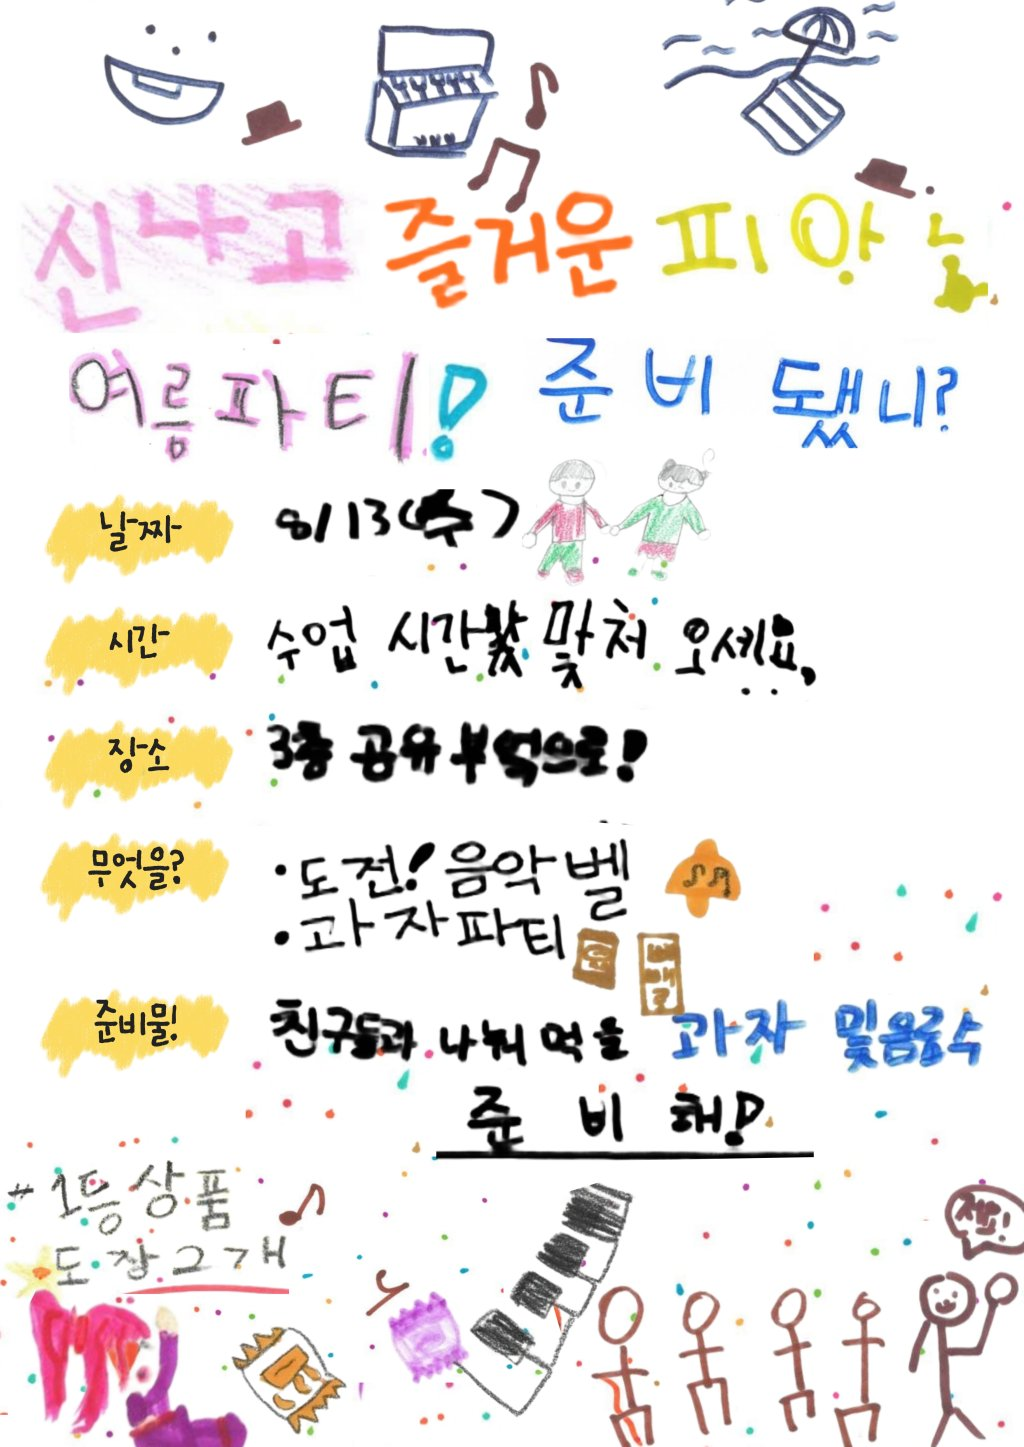 신나고 즐거운 피아노
여름파티! 준비 됐니?
날짜 8/13(수)
시간 수업 시간 맞쳐 오세요.
장소 3층 공유부엌으로!
무엇을? ·도전! 음악벨
·과자파티
준비물! 친구들과 나눠 먹을 과자 및 음료수
준비해!
#1등상품
도장 2개
저요!